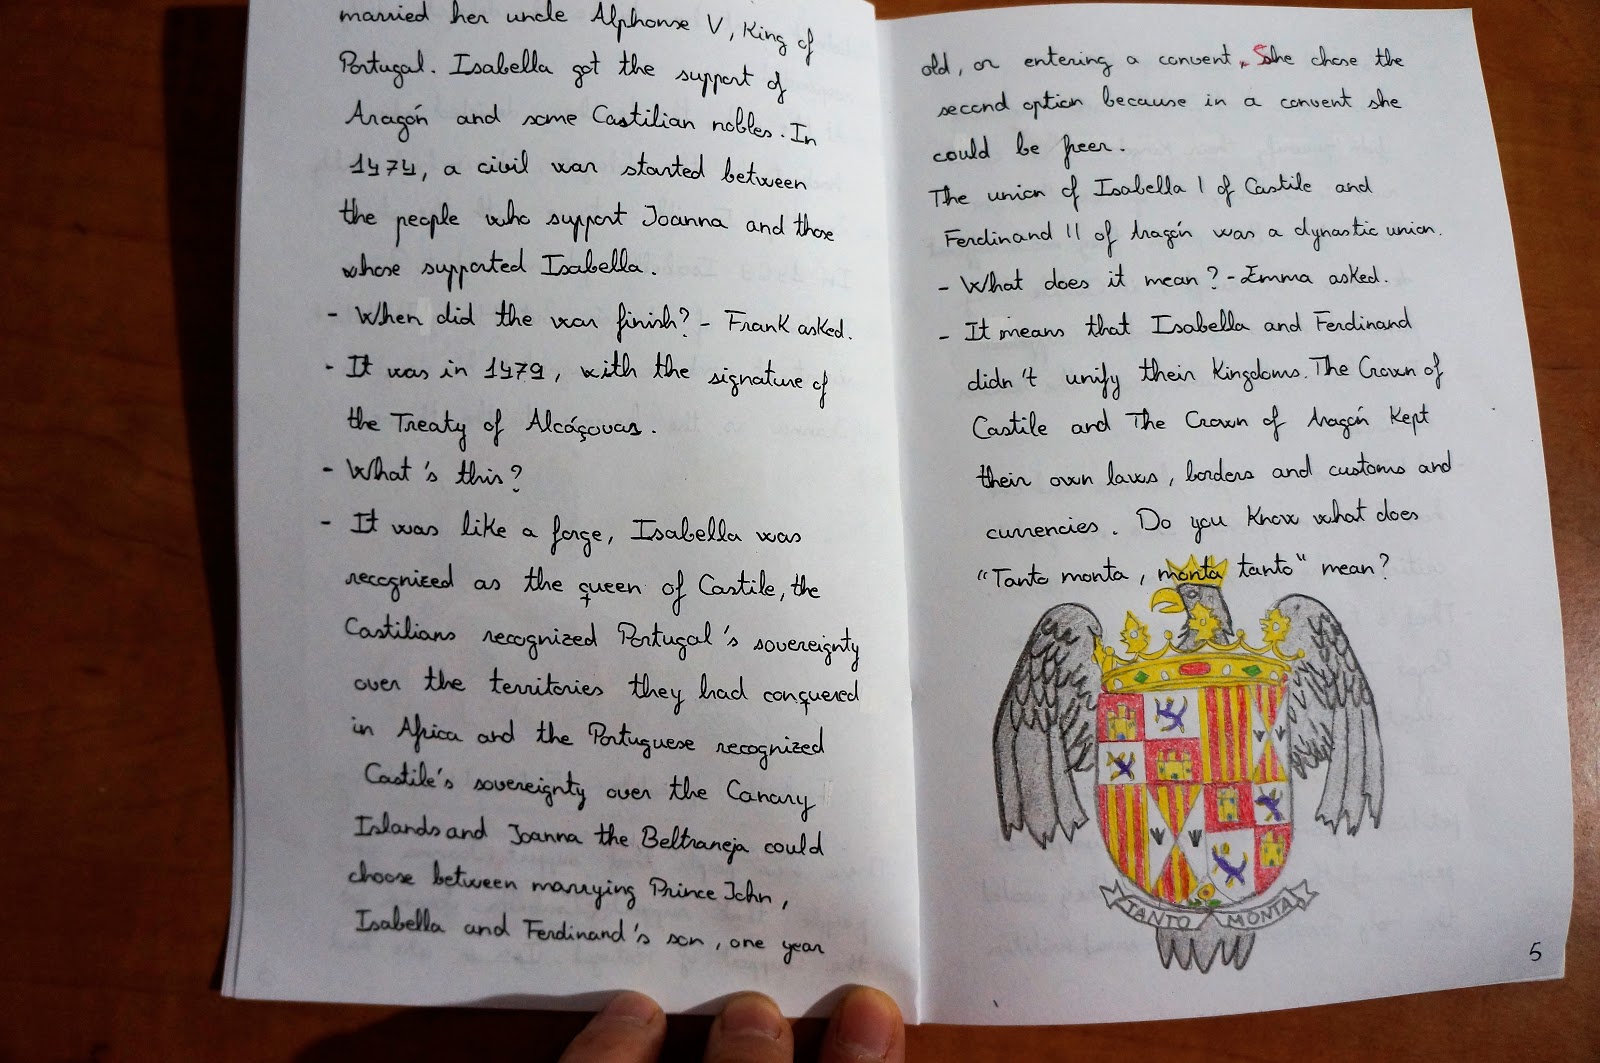 married her uncle Alphonse V, King of
Portugal. Isabella got the support of
Aragón and some Castilian nobles. In
1474, a civil war started between
the people who support Joanna and those
whose supported Isabella.
- When did the war finish? - Frank asked.
- It was in 1479, with the signature of
the Treaty of Alcáçovas.
- What's this?
- It was like a forge, Isabella was
recognized as the queen of Castile, the
Castilians recognized Portugal's sovereignty
over the territories they had conquered
in Africa and the Portuguese recognized
Castile's sovereignty over the Canary
Islands and Joanna the Beltraneja could
choose between marrying Prince John,
Isabella and Ferdinand's son, one year
old, or entering a convent. She chose the
second option because in a convent she
could be freer.
The union of Isabella I of Castile and
Ferdinand II of Aragón was a dynastic union.
- What does it mean? - Emma asked.
- It means that Isabella and Ferdinand
didn't unify their Kingdoms. The Crown of
Castile and The Crown of Aragón Kept
their own laws, borders and customs and
currencies. Do you Know what does
"Tanto monta, monta tanto" mean?
TANTO MONTA
5